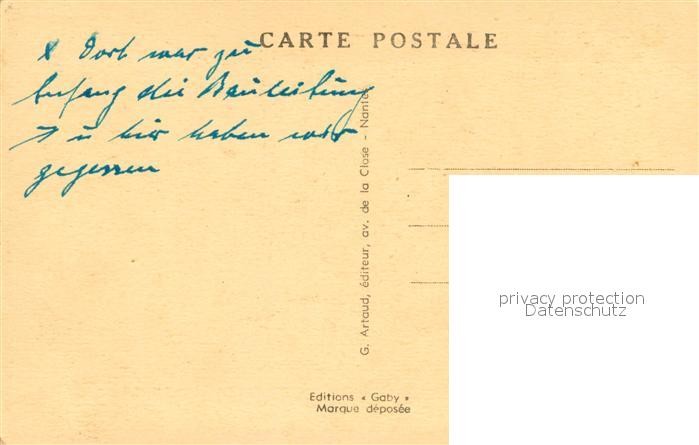 CARTE POSTALE
x Dort war zu
Anfang die Bauleitung
→ u hier haben wir
gegessen
G. Artaud, éditeur, av. de la Close - Nantes
privacy protection
Datenschutz
Editions « Gaby »
Marque déposée